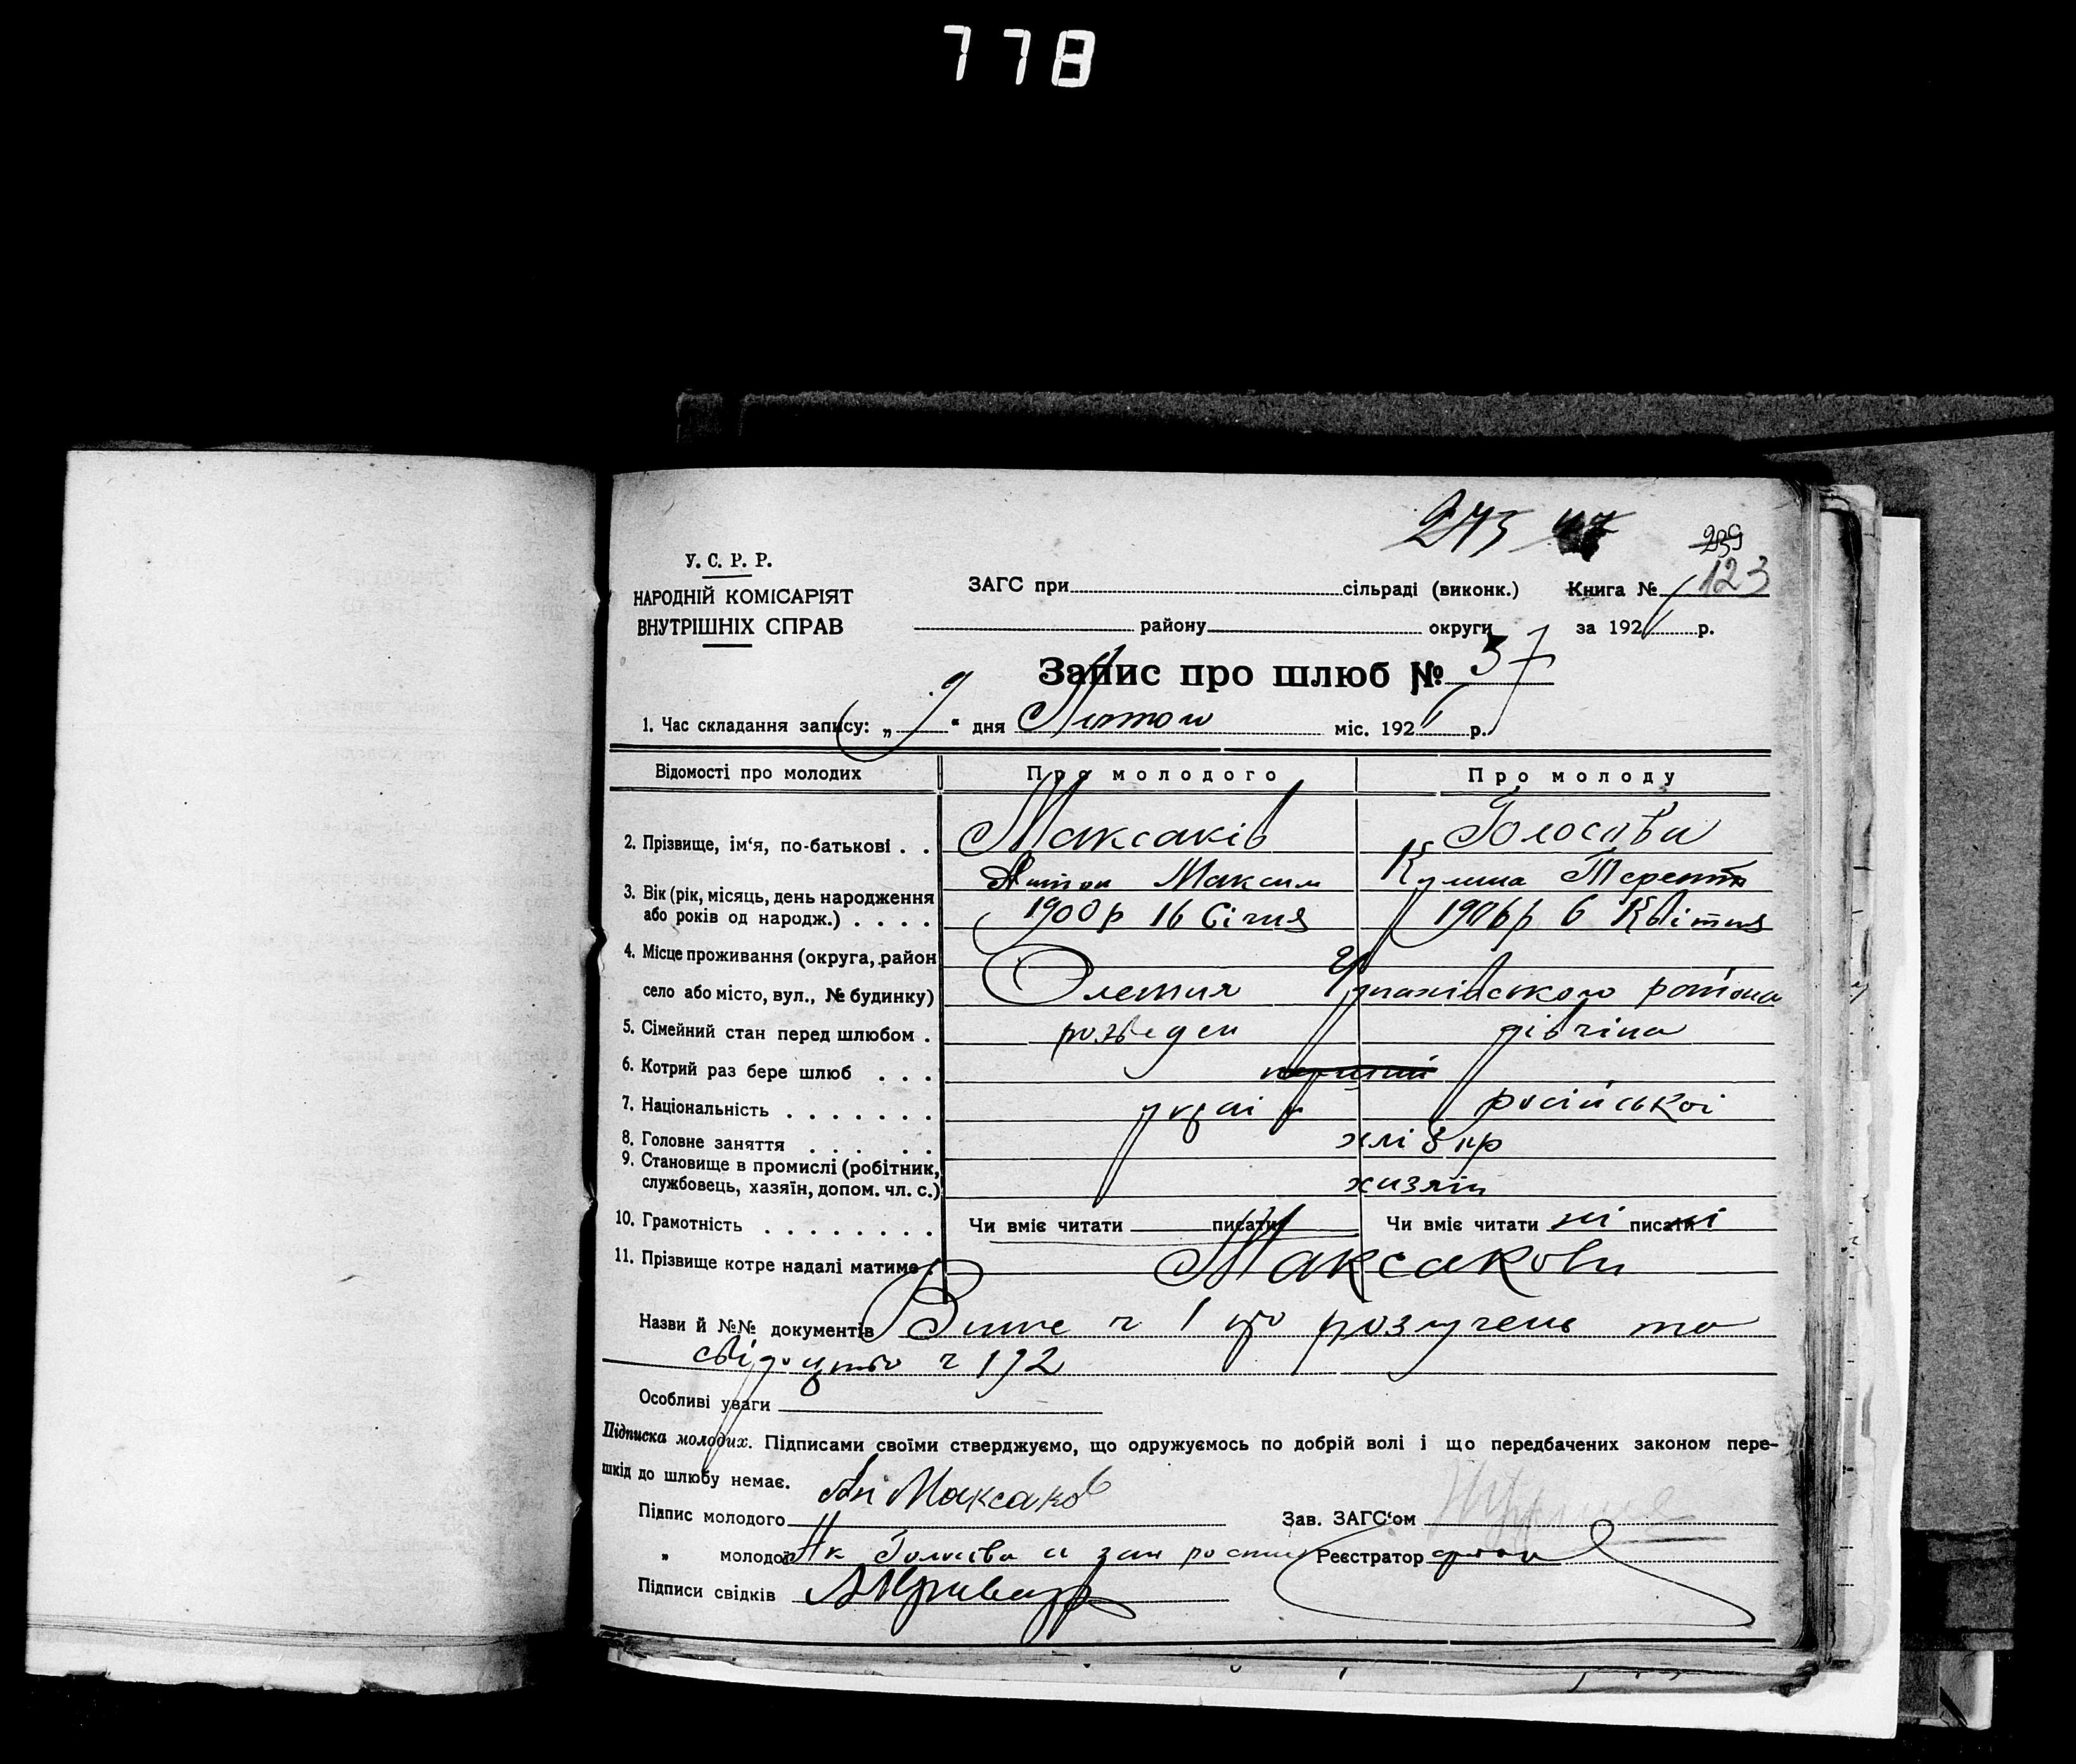 778
273 47
239
У. С. Р. Р.
НАРОДНІЙ КОМІСАРІЯТ
ВНУТРІШНІХ СПРАВ
ЗАГС при сільраді (виконк.) Книга № 123
району округи за 192 р.
Запис про шлюб № 37
1. Час складання запису: „ 9 “ дня Лютого міс. 192 р.
Відомості про молодих Про молодого Про молоду
2. Прізвище, ім‘я, по-батькові . . Максаків Голосова
Антон Максим Килина Терент
3. Вік (рік, місяць, день народження
або років од народж.) . . . . 1900 р 16 Січня 1906 р 6 Квітня
4. Місце проживання (округа, район
село або місто, вул., № будинку) району
5. Сімейний стан перед шлюбом . розведен дівчина
6. Котрий раз бере шлюб . . .
7. Національність . . . . . . . україн російської
8. Головне заняття . . . . . хлібор
9. Становище в промислі (робітник,
службовець, хазяїн, допом. чл. с.) хазяїн
10. Грамотність . . . . . . . . Чи вміє читати писати Чи вміє читати ні писати ні
11. Прізвище котре надалі матиме . Максакови
Назви й №№ документів ч 1 про розлучень та
свідоцтво ч 192
Особливі уваги
Підписка молодих. Підписами своїми стверджуємо, що одружуємось по добрій волі і що передбачених законом пере-
шкід до шлюбу немає.
Підпис молодого Ан Максаков Зав. ЗАГС‘ом
„ молодої Реєстратор
Підписи свідків